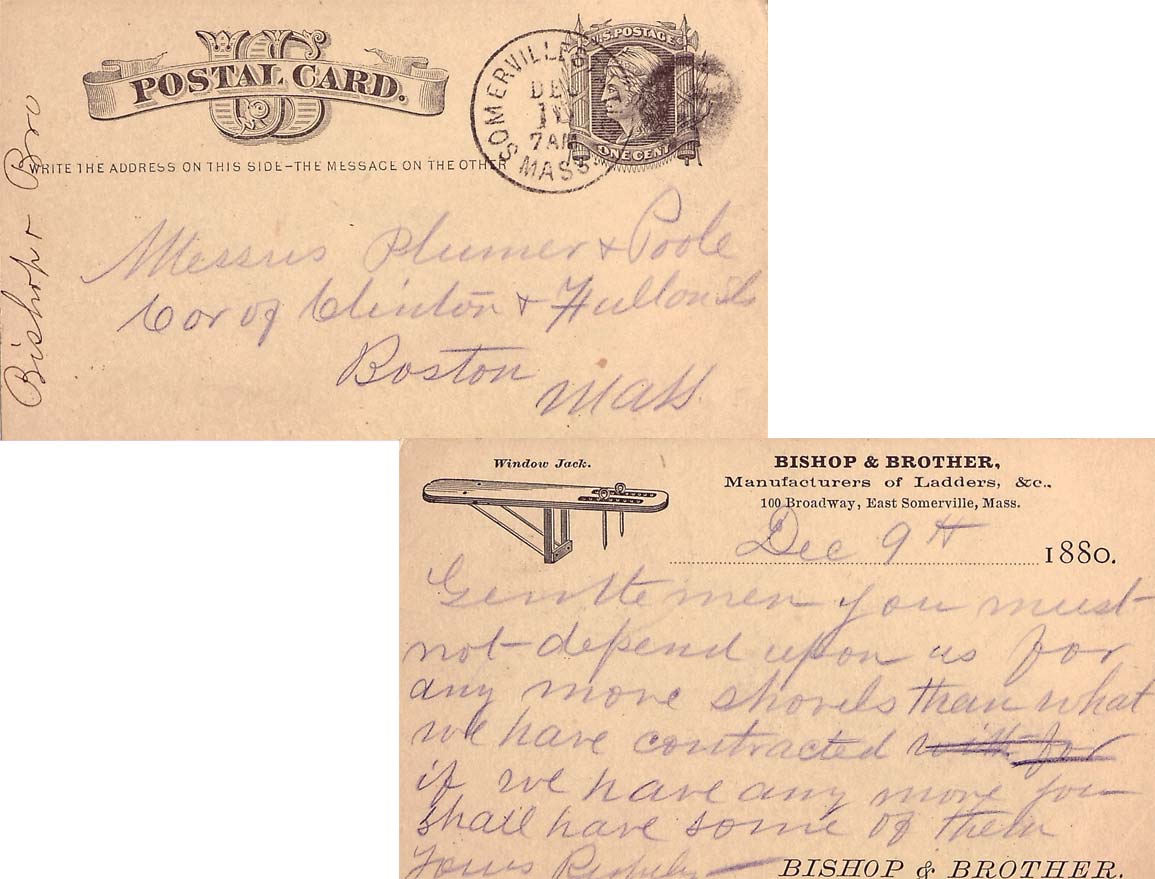 US
POSTAL CARD.
WRITE THE ADDRESS ON THIS SIDE–THE MESSAGE ON THE OTHER
U.S. POSTAGE
ONE CENT
SOMERVILLE
DEC
10
7 AM
MASS.
Bishop & Bro
Messrs Plumer & Poole
Cor of Clinton & Fulton Sts
Boston
Mass
Window Jack.
BISHOP & BROTHER,
Manufacturers of Ladders, &c.,
100 Broadway, East Somerville, Mass.
Dec 9th 1880.
Gentlemen you must
not depend upon us for
any more shovels than what
we have contracted with for
if we have any more you
shall have some of them
Yours
BISHOP & BROTHER.